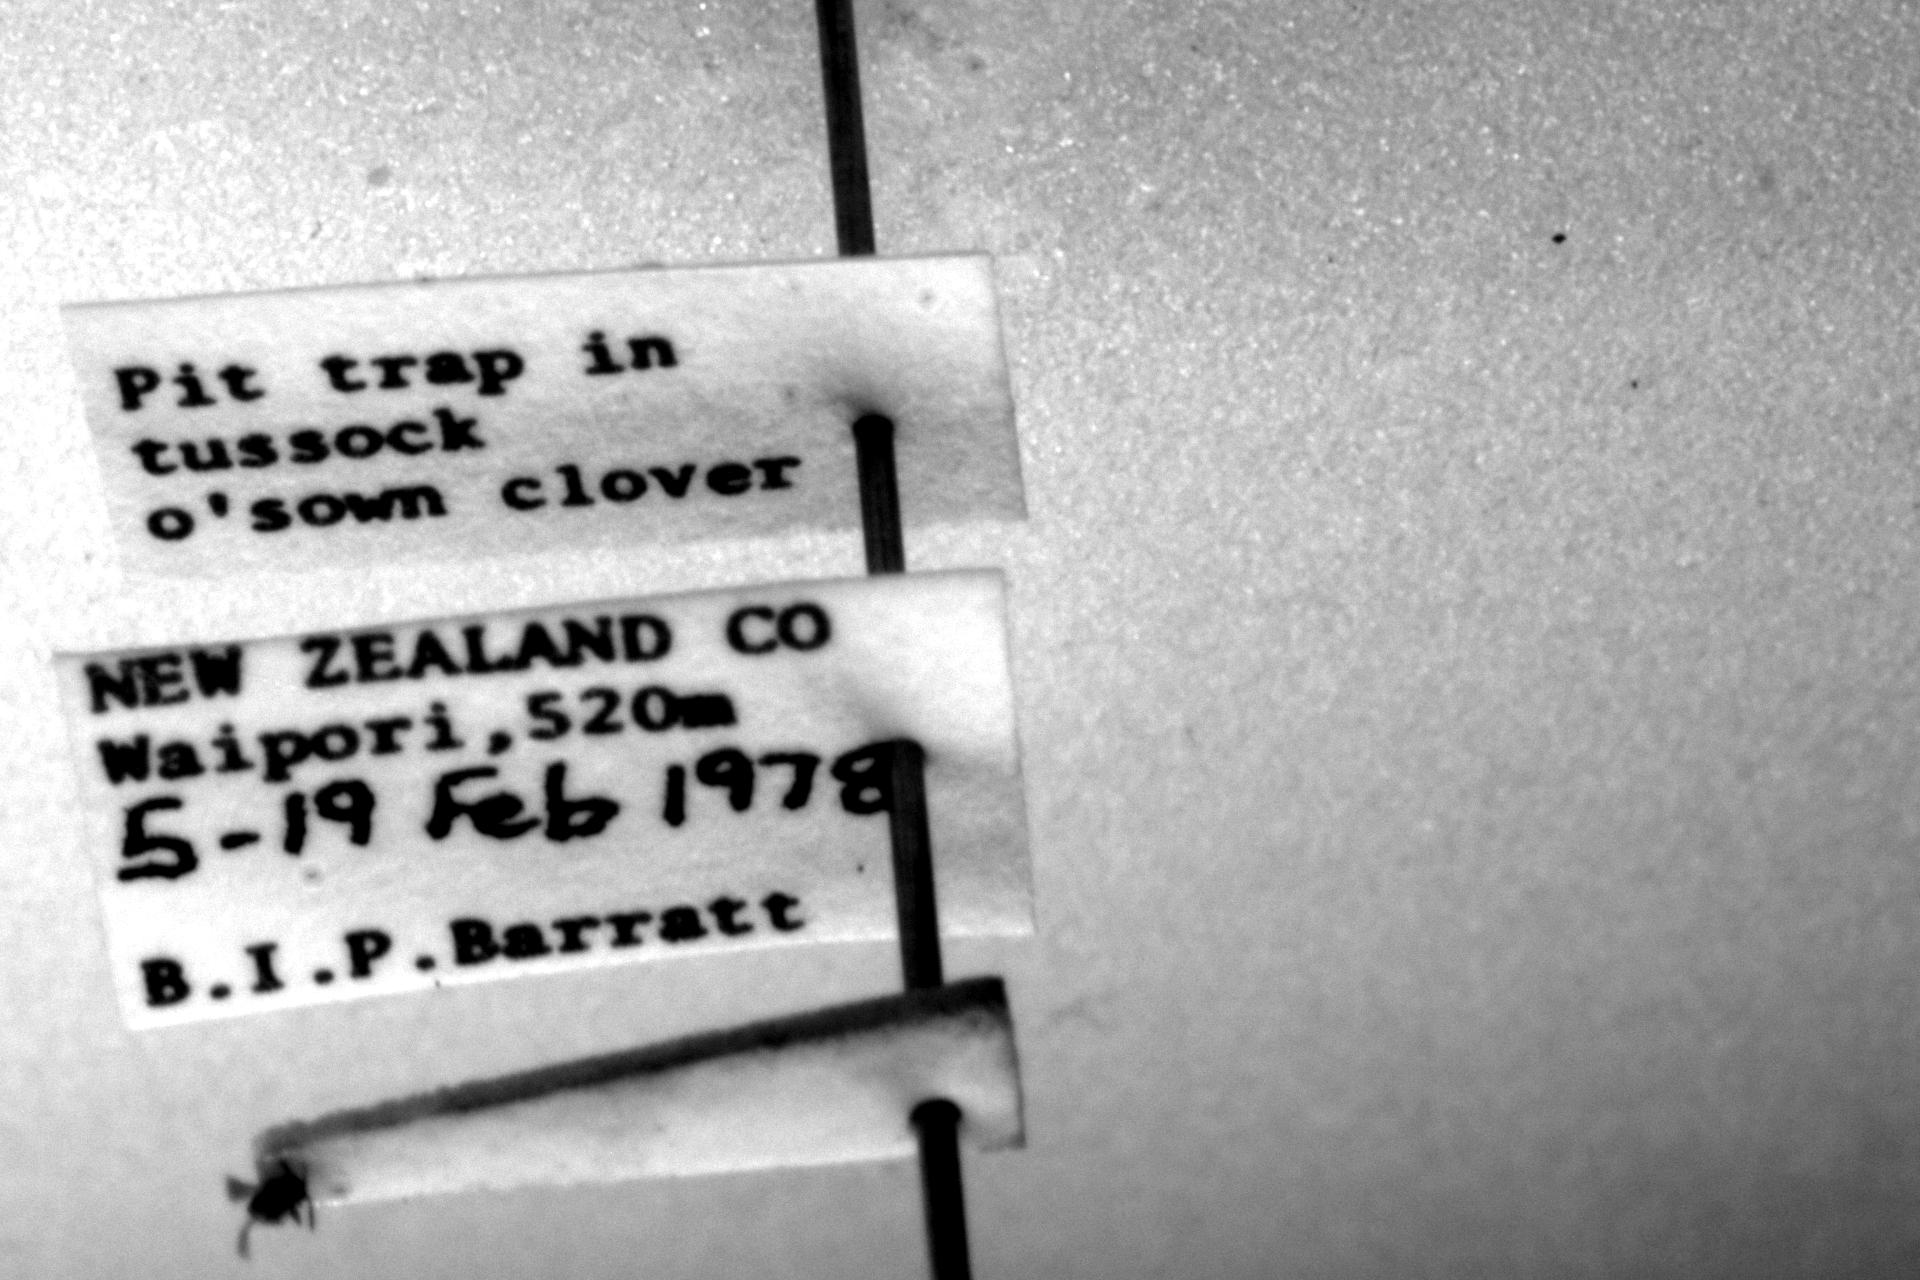 Pit trap in
tussock
o'sown clover
NEW ZEALAND CO
Waipori,520m
5-19 Feb 1978
B.I.P.Barratt